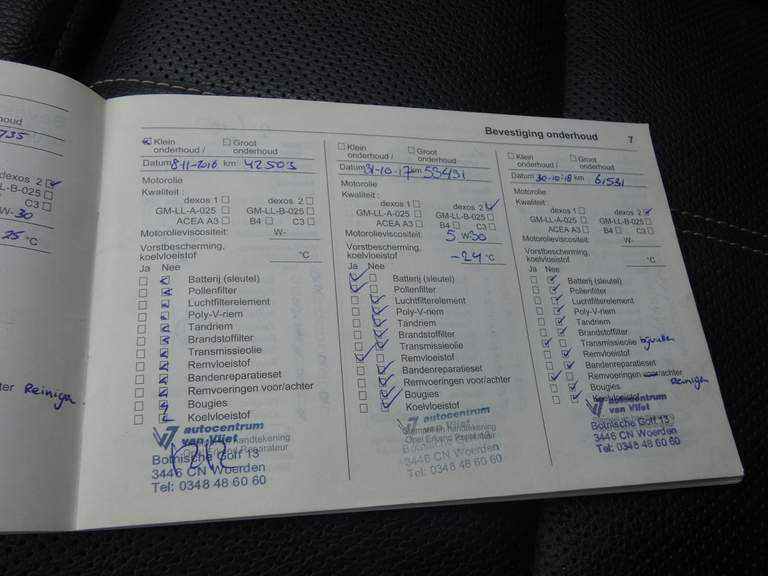 Bevestiging onderhoud 7
houd
735
dexos 2
L-B-025
C3
W-30
25 °C
ter Reinigen
Klein onderhoud / Groot onderhoud
Datum 8-11-2016 km 42503
Motorolie
Kwaliteit :
dexos 1 dexos 2
GM-LL-A-025 GM-LL-B-025
ACEA A3 B4 C3
Motorolieviscositeit: W-
Vorstbescherming,
koelvloeistof °C
Ja Nee
Batterij (sleutel)
Pollenfilter
Luchtfilterelement
Poly-V-riem
Tandriem
Brandstoffilter
Transmissieolie
Remvloeistof
Bandenreparatieset
Remvoeringen voor/achter
Bougies
Koelvloeistof
autocentrum
van Vliet
Opel Erkend Reparateur
Botnische Golf 13
3446 CN Woerden
Tel: 0348 48 60 60
Klein onderhoud / Groot onderhoud
Datum 31-10-17 km 53431
Motorolie
Kwaliteit :
dexos 1 dexos 2
GM-LL-A-025 GM-LL-B-025
ACEA A3 B4 C3
Motorolieviscositeit: 5 W-30
Vorstbescherming,
koelvloeistof -24 °C
Ja Nee
Batterij (sleutel)
Pollenfilter
Luchtfilterelement
Poly-V-riem
Tandriem
Brandstoffilter
Transmissieolie
Remvloeistof
Bandenreparatieset
Remvoeringen voor/achter
Bougies
Koelvloeistof
autocentrum
van Vliet
Stempel en handtekening
Opel Erkend Reparateur
Botnische Golf 13
3446 CN Woerden
Tel: 0348 48 60 60
Klein onderhoud / Groot onderhoud
Datum 30-10-18 km 61531
Motorolie
Kwaliteit :
dexos 1 dexos 2
GM-LL-A-025 GM-LL-B-025
ACEA A3 B4 C3
Motorolieviscositeit: W-
Vorstbescherming,
koelvloeistof °C
Ja Nee
Batterij (sleutel)
Pollenfilter
Luchtfilterelement
Poly-V-riem
Tandriem
Brandstoffilter
Transmissieolie bijvullen
Remvloeistof
Bandenreparatieset
Remvoeringen voor/achter
Reinigen
Bougies
Koelvloeistof
autocentrum
van Vliet
Botnische Golf 13
3446 CN Woerden
Tel: 0348 48 60 60